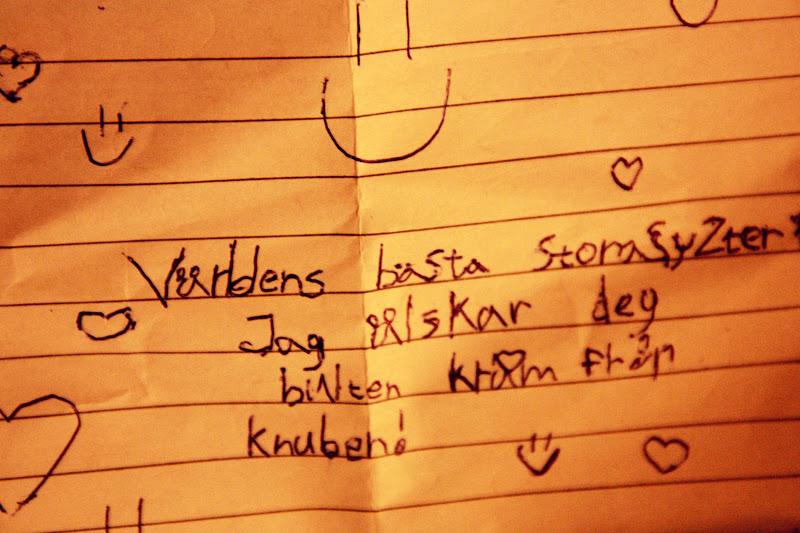 Världens bästa storasyzter
Jag älskar dey
bilten kram från
knuben!